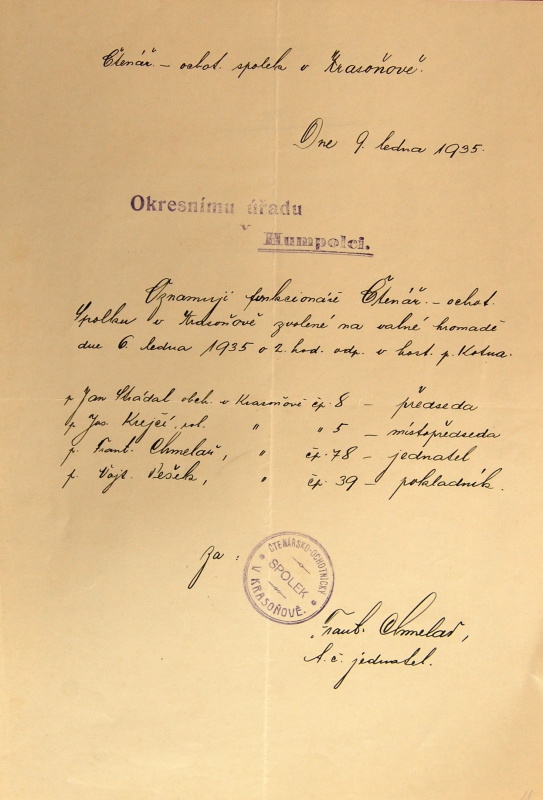 Čtenář. – ochot. spolek v Krasoňově.
Dne 9. ledna 1935.
Okresnímu úřadu
v
Humpolci.
Oznamuji funkcionáře Čtenář. – ochot.
Spolku v Krasoňově zvolené na valné hromadě
dne 6. ledna 1935 o 2. hod. odp. v host. p. Kotna.
p Jan Strádal obch. v Krasoňově čp. 8 – předseda
p Jos. Krejčí, rol. " " 5 – místopředseda
p. Frant. Chmelař, " čp. 78 – jednatel
p. Vojt. Vešek, " čp. 39 – pokladník.
Za :
ČTENÁŘSKO-OCHOTNICKÝ
SPOLEK
V KRASOŇOVĚ.
Frant. Chmelař,
t. č. jednatel.